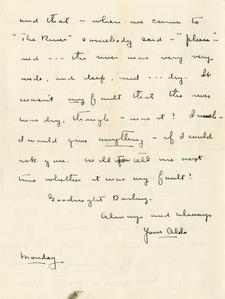 and that - when we came to
"The River" somebody said - "please" -
and --- the river was very very
wide, and deep, and --- dry. It
wasn't my fault that the river
was dry, though - was it? I
I would give anything - if I could
ask you. Will you tell me next
time whether it was my fault?
Goodnight Darling.
Always and always
Your Aldo
Monday